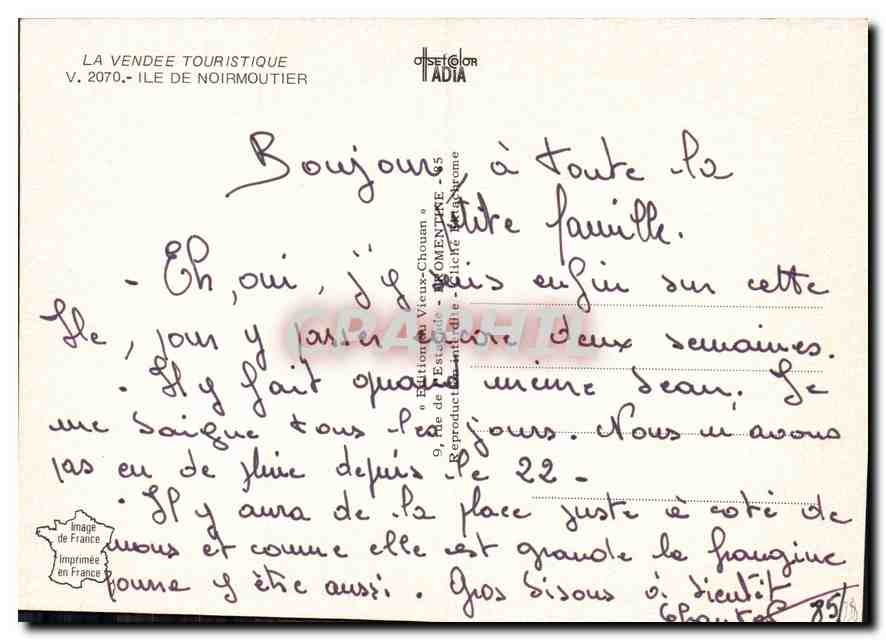 LA VENDEE TOURISTIQUE
V. 2070.- ILE DE NOIRMOUTIER
OFFSET COLOR
ADIA
Bonjour, à toute la
petite famille.
- Eh, oui, j'y suis enfin sur cette
île, pour y passer encore deux semaines.
- Il y fait quand même beau. Je
me baigne tous les jours. Nous n'avons
pas eu de pluie depuis le 22 -
- Il y aura de la place juste à coté de
nous et comme elle est grande la frangine
pourra y être aussi. Gros bisous à bientôt
Chantal 85/
« Editions du Vieux-Chouan »
9, rue de l'Estacade - FROMENTINE - 85
Reproduction interdite - Cliché Ektachrome
Image
de France
Imprimée
en France
CPAPHIL